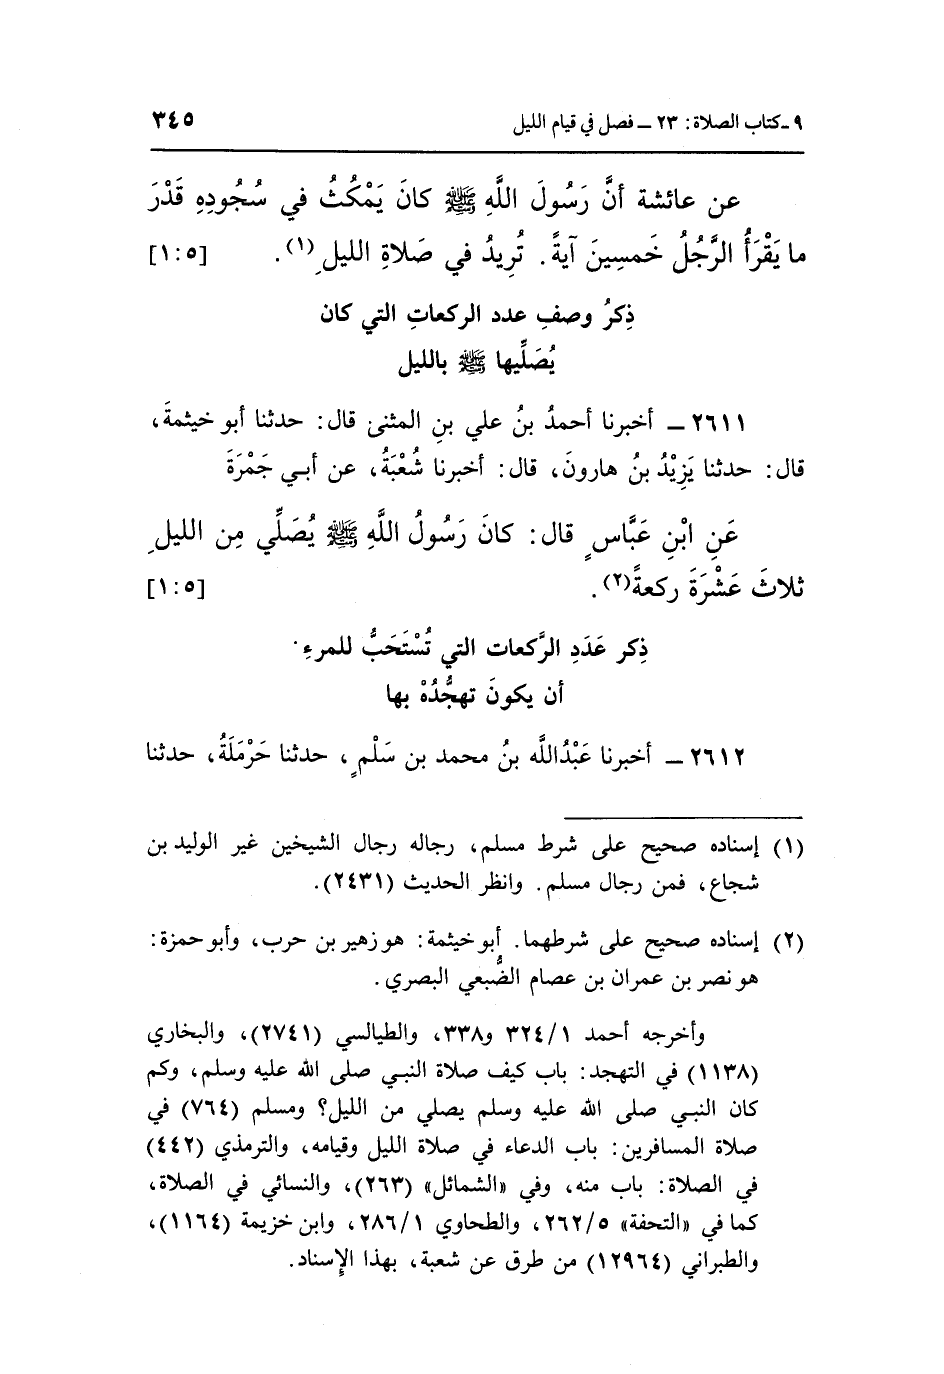 ٩ ـ كتاب الصلاة: ٢٣ ـ فصل في قيام الليل ٣٤٥
عن عائشة أنَّ رَسُولَ اللَّهِ ﷺ كانَ يَمْكُثُ في سُجُودِهِ قَدْرَ
ما يَقْرَأُ الرَّجُلُ خَمسِينَ آيةً. تُرِيدُ في صَلاةِ الليلِ(١). [١:٥]
ذِكرُ وصفِ عدد الركعاتِ التي كان
يُصَلِّيها ﷺ بالليل
٢٦١١ ـ أخبرنا أحمدُ بنُ علي بنِ المثنى قال: حدثنا أبو خيثمةَ،
قال: حدثنا يَزِيْدُ بنُ هارونَ، قال: أخبرنا شُعْبَةُ، عن أبـي جَمْرَةَ
عَنِ ابْنِ عَبَّاسٍ قال: كانَ رَسُولُ اللَّهِ ﷺ يُصَلِّي مِن الليلِ
ثلاثَ عَشْرَةَ ركعةً(٢). [١:٥]
ذِكر عَدَدِ الرَّكعات التي تُسْتَحَبُّ للمرءِ
أن يكونَ تهجُّدُهْ بها
٢٦١٢ ـ أخبرنا عَبْدُاللَّه بنُ محمد بن سَلْمٍ، حدثنا حَرْمَلَةُ، حدثنا
(١) إسناده صحيح على شرط مسلم، رجاله رجال الشيخين غير الوليد بن
شجاع، فمن رجال مسلم. وانظر الحديث (٢٤٣١).
(٢) إسناده صحيح على شرطهما. أبو خيثمة: هو زهير بن حرب، وأبو حمزة:
هو نصر بن عمران بن عصام الضُّبعي البصري.
وأخرجه أحمد ٣٢٤/١ و٣٣٨، والطيالسي (٢٧٤١)، والبخاري
(١١٣٨) في التهجد: باب كيف صلاة النبـي صلى الله عليه وسلم، وكم
كان النبـي صلى الله عليه وسلم يصلي من الليل؟ ومسلم (٧٦٤) في
صلاة المسافرين: باب الدعاء في صلاة الليل وقيامه، والترمذي (٤٤٢)
في الصلاة: باب منه، وفي «الشمائل» (٢٦٣)، والنسائي في الصلاة،
كما في «التحفة» ٢٦٢/٥، والطحاوي ٢٨٦/١، وابن خزيمة (١١٦٤)،
والطبراني (١٢٩٦٤) من طرق عن شعبة، بهذا الإسناد.